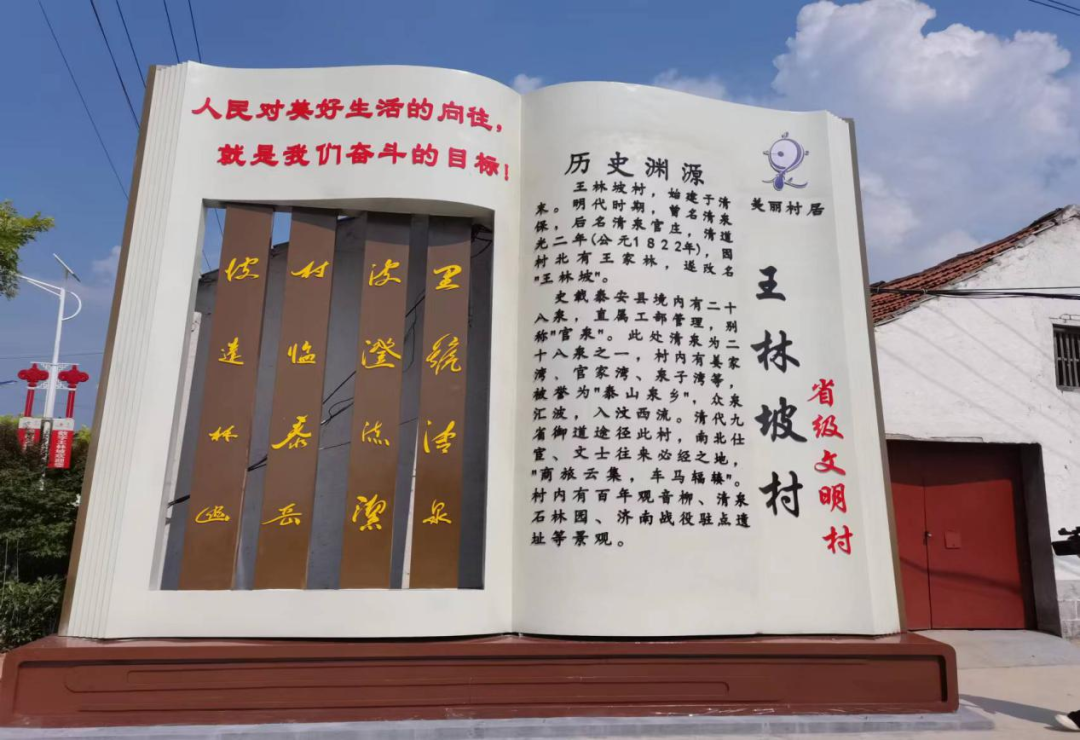 人民对美好生活的向往，
就是我们奋斗的目标！
王 清泉
波澄流潔
村临泰岳
坡 林
历史渊源
王林坡村，始建于清
末。明代时期，曾名清泉
保，后名清泉官庄，清道
光二年(公元1822年)，因
村北有王家林，遂改名
"王林坡"。
史载泰安县境内有二十
八泉，直属工部管理，别
称"官泉"。此处清泉为二
十八泉之一，村内有姜家
湾、官家湾、泉子湾等，
被誉为"泰山泉乡"，众泉
汇波，入汶西流。清代九
省御道途径此村，南北仕
宦、文士往来必经之地，
"商旅云集，车马辐辏"。
村内有百年观音柳、清泉
石林园、济南战役驻点遗
址等景观。
美丽村居
王林坡村
省级文明村